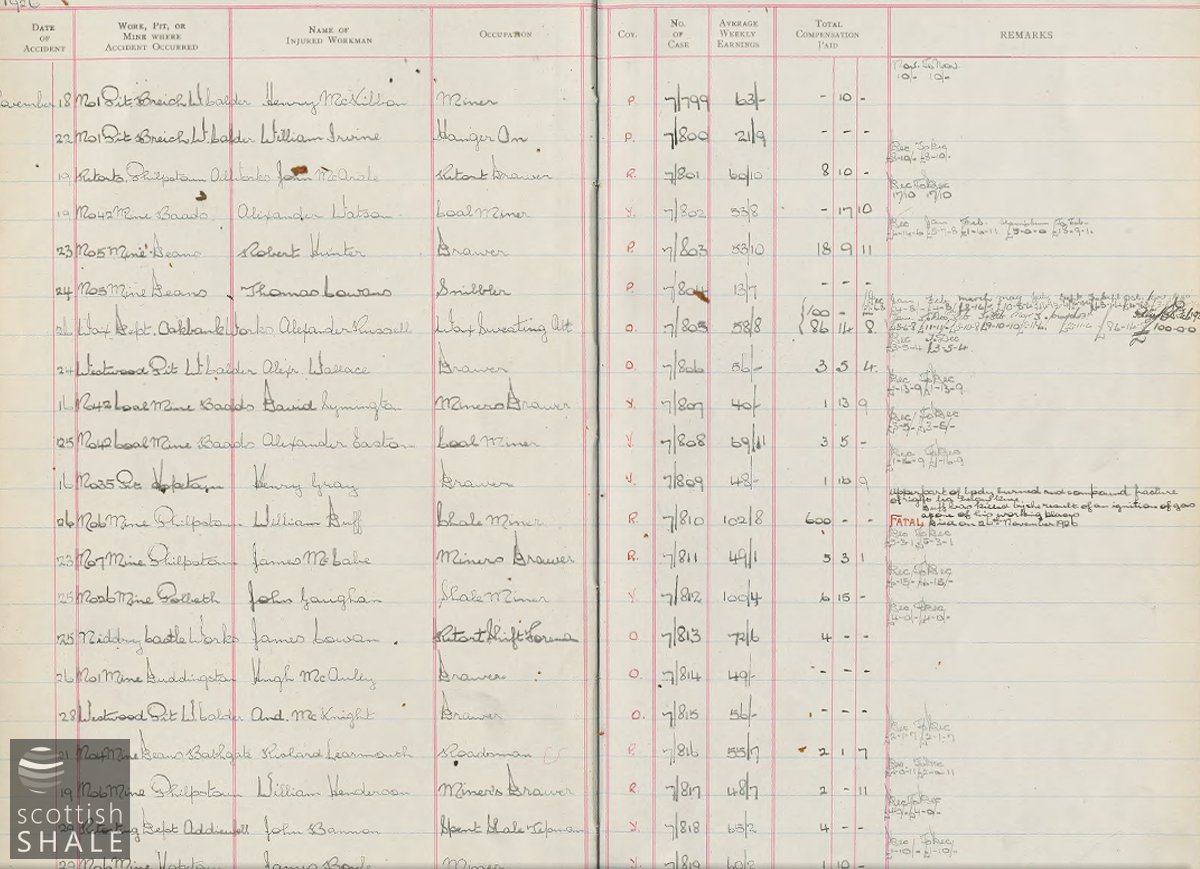 1926
DATE OF ACCIDENT WORK, PIT, OR MINE WHERE ACCIDENT OCCURRED NAME OF INJURED WORKMAN OCCUPATION COY. NO. OF CASE AVERAGE WEEKLY EARNINGS TOTAL COMPENSATION PAID REMARKS
Nov. To Nov.
10/- 10/-
November 18 No1 Pit Breich W. Calder Henry McKibbon Miner P. 7/799 63/- - 10 -
22 No1 Pit Breich W. Calder William Irvine Hanger On P. 7/800 21/9 - - -
Dec To Dec
£8-10/- £8-10/-
19 Retorts Philpstoun Oil Works John McArdle Retort Drawer R. 7/801 60/10 8 10 -
Dec To Dec
17/10 17/10
19 No42 Mine Baads Alexander Watson Coal Miner Y. 7/802 53/8 - 17 10
Dec Jan Feb. To Feb.
23 No5 Mine Deans Robert Hunter Drawer P. 7/803 53/10 18 9 11
24 No5 Mine Deans Thomas Cowans Snibbler P. 7/804 13/7 - - -
26 Wax Dept. Oakbank Works Alexander Russell Wax Sweating Att O. 7/805 58/8 100 - - 86 14 8
Dec To Dec
£3-5-4 £3-5-4
24 Westwood Pit W. Calder Alexr. Wallace Drawer O. 7/806 56/- 3 5 4
Dec To Dec
£1-13-9 £1-13-9
16 No42 Coal Mine Baads David Lymington Miners Drawer Y. 7/807 40/- 1 13 9
Dec To Dec
£3-5/- £3-5/-
25 No42 Coal Mine Baads Alexander Easton Coal Miner Y. 7/808 69/11 3 5 -
Dec To Dec
£1-16-9 £1-16-9
16 No35 Pit Hopetoun Henry Gray Drawer Y. 7/809 48/- 1 16 9
Upper part of body burned and compound fracture
of right leg below knee.
Duff was killed by the result of an ignition of gas
at one of his working places
26 No6 Mine Philpstoun William Duff Shale Miner R. 7/810 102/8 600 - - FATAL Died on 26th November 1926
Dec To Dec
£5-3-1 £5-3-1
23 No7 Mine Philpstoun James McCabe Miners Drawer R. 7/811 49/1 5 3 1
Dec To Dec
£6-15/- £6-15/-
25 No26 Mine Polbeth John Gaughan Shale Miner Y. 7/812 100/4 6 15 -
Dec To Dec
£4-0/- £4-0/-
25 Niddry Castle Works James Cowan Retort Shift Forema O. 7/813 72/6 4 - -
26 No1 Mine Duddingston Hugh McAuley Drawer O. 7/814 49/- - - -
28 Westwood Pit W. Calder And. McKnight Drawer O. 7/815 56/- - - -
Dec To Dec
£2-1-7 £2-1-7
21 No4 Mine Deans Bathgate Richard Learmonth Roadsman P. 7/816 55/7 2 1 7
Dec. To Dec
£2-0-11 £2-0-11
19 No6 Mine Philpstoun William Henderson Miner's Drawer R. 7/817 48/7 2 - 11
Dec To Dec
£4-0/- £4-0/-
29 Retorting Dept Addiewell John Bannon Spent Shale Tipman Y. 7/818 65/2 4 - -
Dec To Dec
£1-10/- £1-10/-
22 No6 Mine Hopetoun James Boyle Miner Y. 7/819 60/2 1 10 -
scottish
SHALE